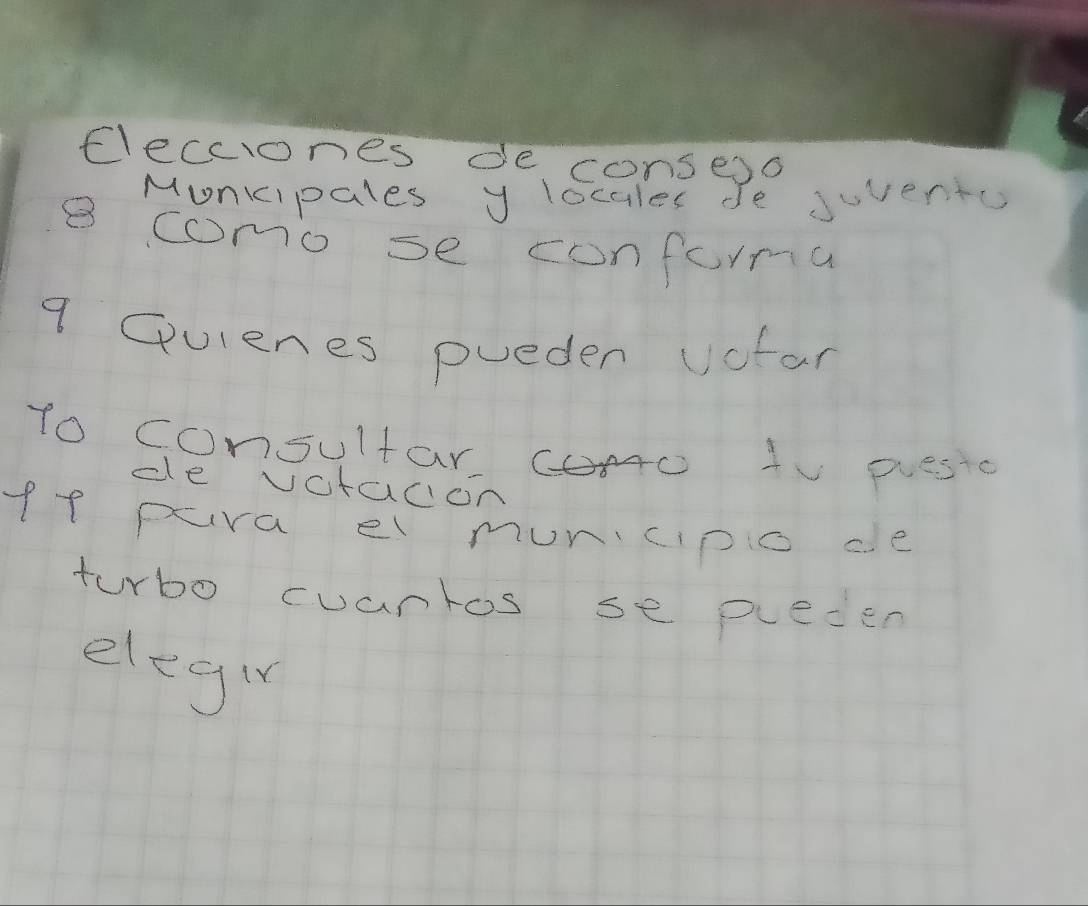 Elecciones de consejo
Municipales y locales de juventu
8 como se conforma
9 Quienes pueden votar
10 consultar como tu puesto
de votacion
11 para el municipio de
turbo cuantos se pueden
elegir